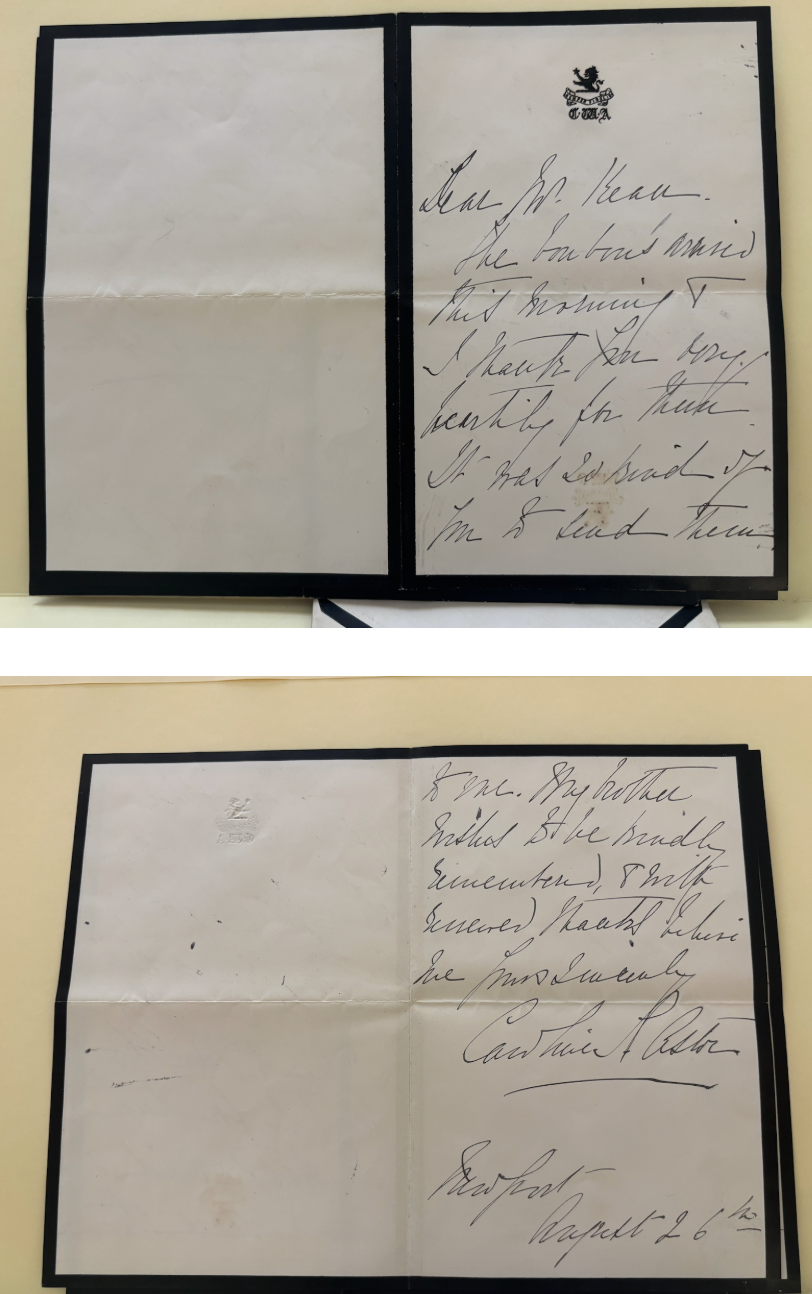 C.W.A
Dear Mr. Kean.
The bonbons arrived
this morning &
I thank you very
heartily for them.
It was so kind of
you to send them
to me. My brother
wishes to be kindly
remembered, & with
renewed thanks believe
me yours sincerely
Caroline A Astor
Newport
August 26th